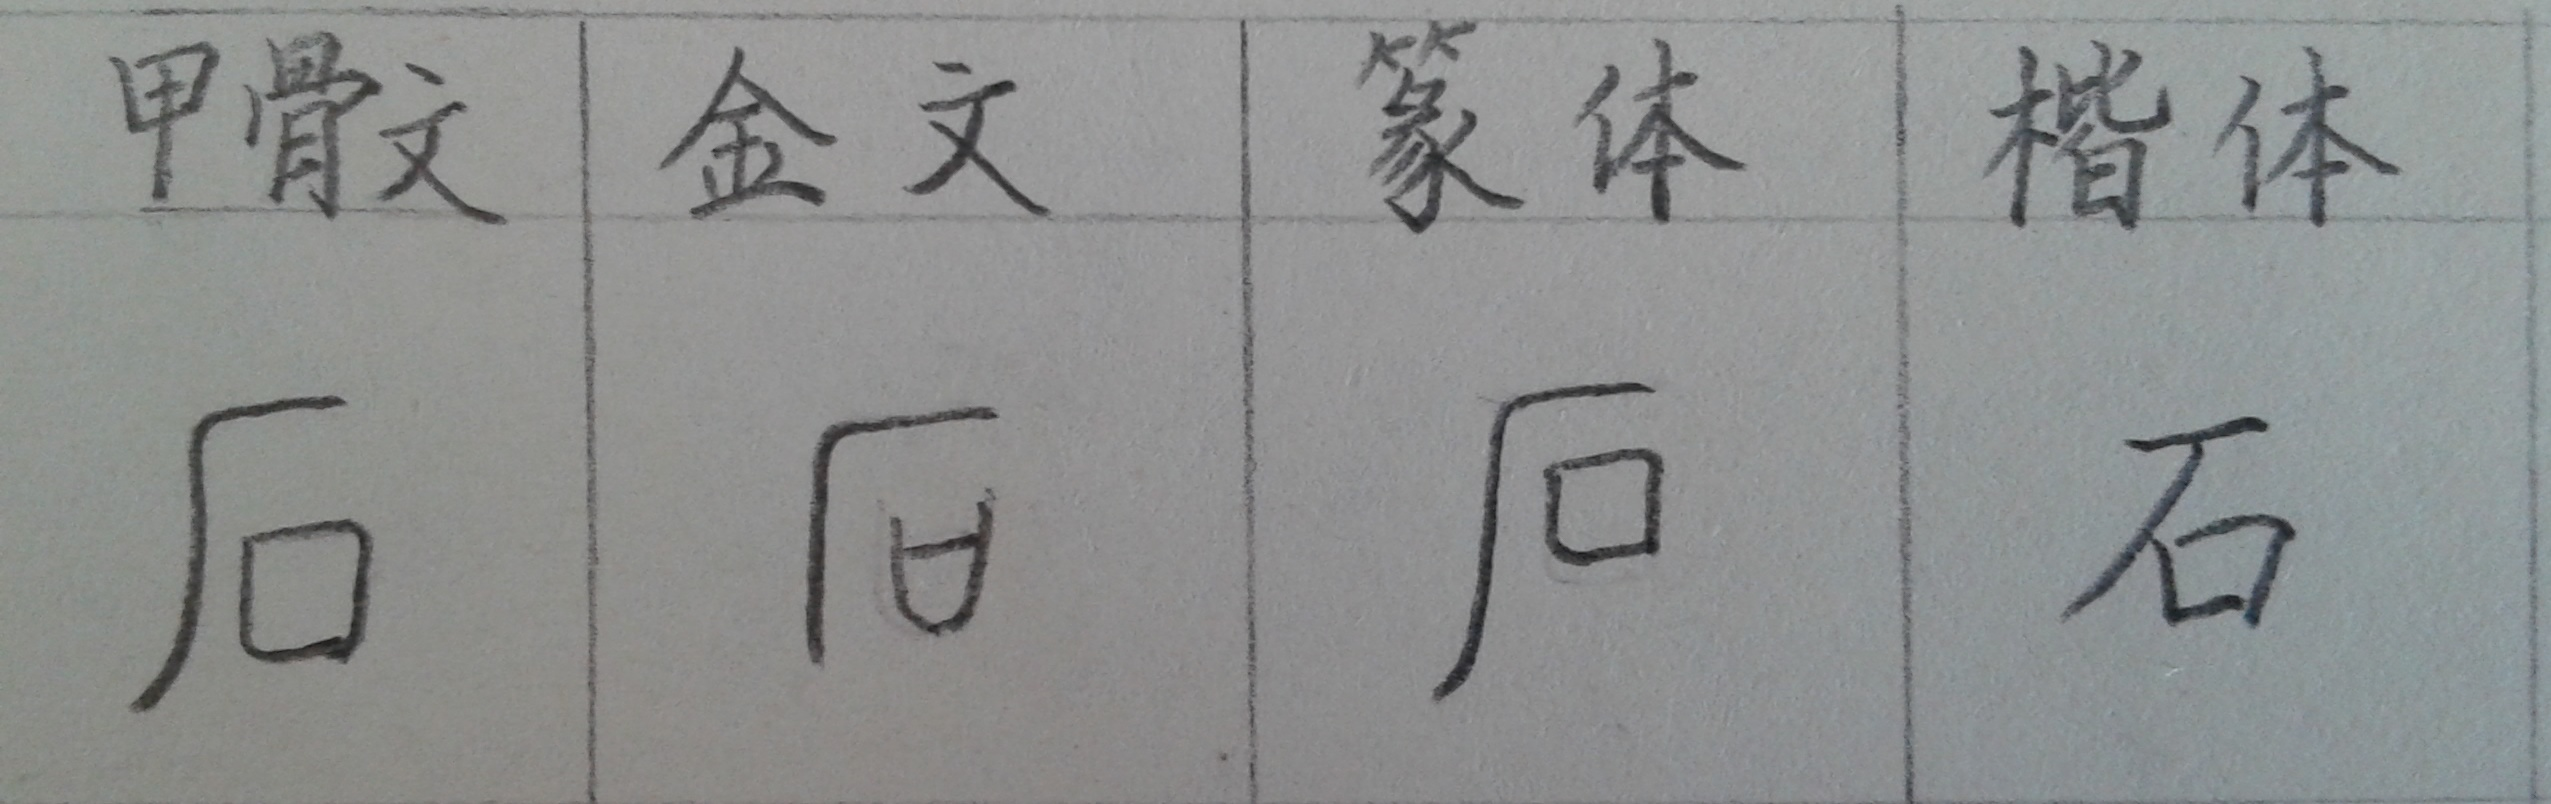 甲骨文 金文 篆体 楷体
石 石 石 石